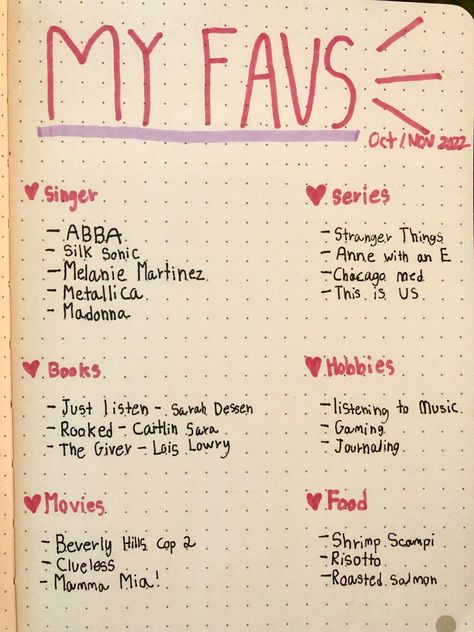 MY FAVS
Oct/Nov 2022
Singer
- ABBA
- Silk Sonic
- Melanie Martinez.
- Metallica.
- Madonna
Series
- Stranger Things
- Anne with an E
- Chacago med.
- This is US.
Books
- Just listen - Sarah Dessen
- Rooked - Caitlin Sara
- The Giver - Lois Lowry
Hobbies
- listening to Music.
- Gaming.
- Journaling.
Movies
- Beverly Hills Cop 2
- Clueless
- Mamma Mia!
Food
- Shrimp Scampi
- Risotto
- Roasted Salmon